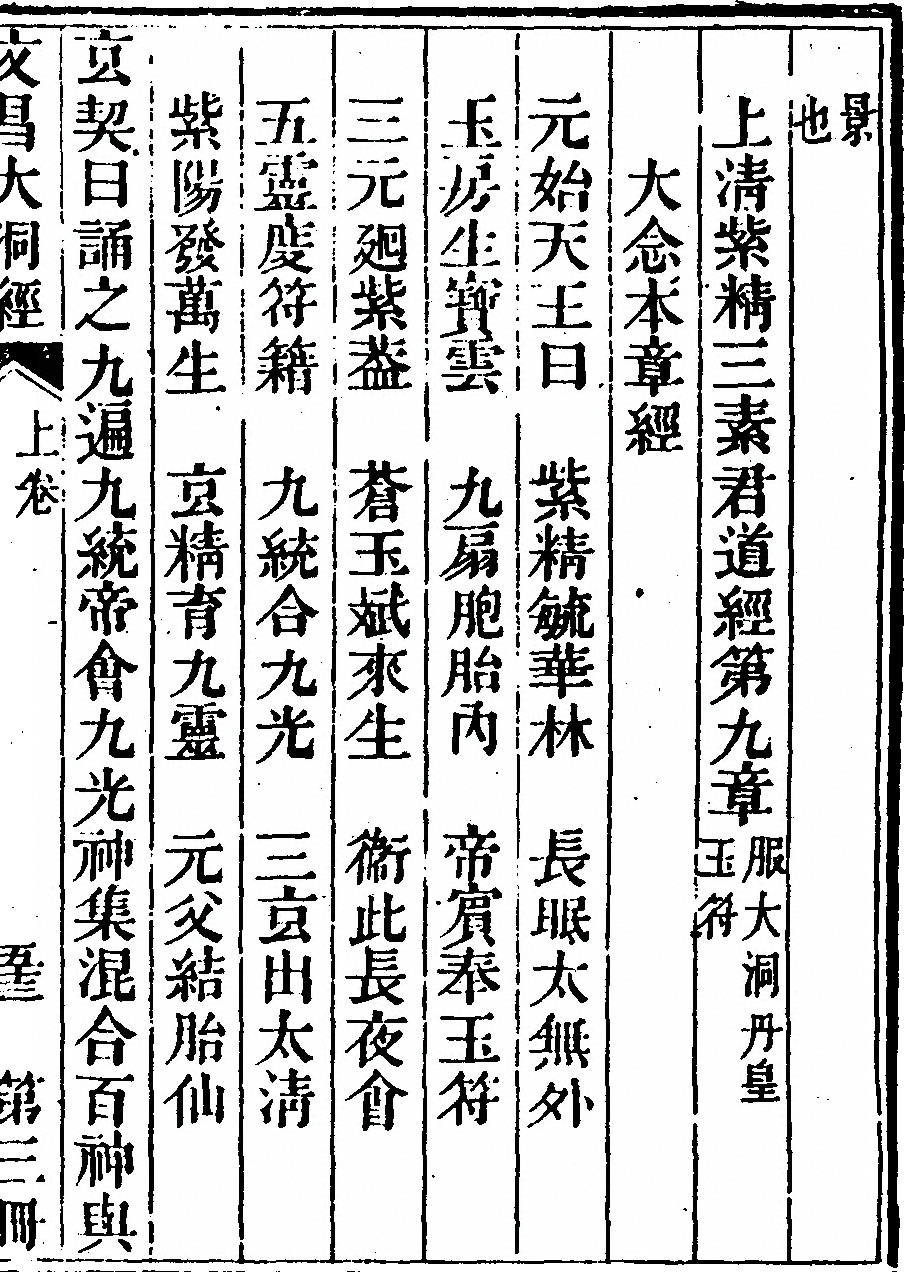 景也
上清紫精三素君道經第九章 服大洞丹皇玉符
大念本章經
元始天王曰 紫精毓華林 長眠太無外
玉房生寶雲 九扇胞胎內 帝賓奉玉符
三元廻紫蓋 蒼玉斌來生 衛此長夜會
五靈度符籍 九統合九光 三玄出太清
紫陽發萬生 玄精育九靈 元父結胎仙
玄契曰誦之九遍九統帝會九光神集混合百神與
文昌大洞經 上卷 第三冊